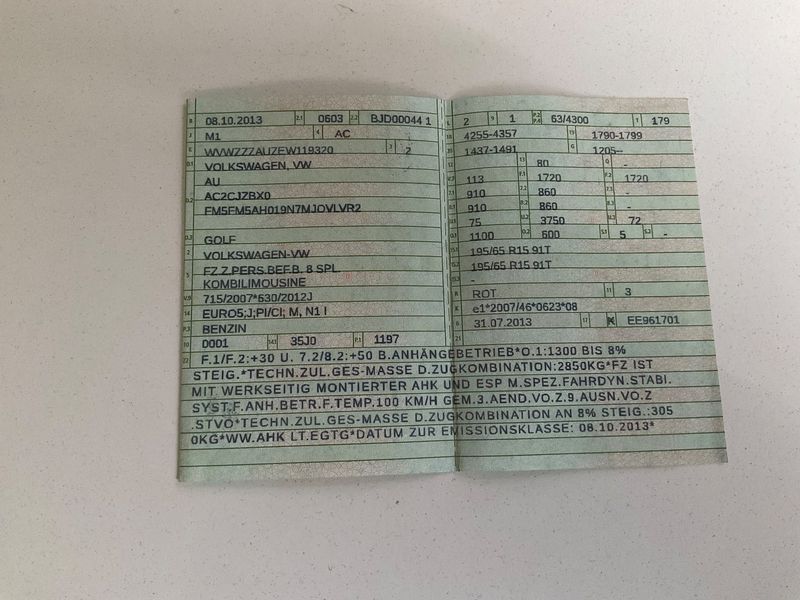 B 08.10.2013 2.1 0603 2.2 BJD00044 1
J M1 4 AC
E WVWZZZAUZEW119320 3 2
D.1 VOLKSWAGEN, VW
AU
D.2 AC2CJZBX0
FM5FM5AH019N7MJOVLVR2
D.3 GOLF
2 VOLKSWAGEN-VW
5 FZ.Z.PERS.BEF.B. 8 SPL.
KOMBILIMOUSINE
V.9 715/2007*630/2012J
14 EURO5;J;PI/CI; M, N1 I
P.3 BENZIN
10 0001 14.1 35J0 P.1 1197
L 2 9 1 P.2 P.4 63/4300 T 179
18 4255-4357 19 1790-1799
20 1437-1491 G 1205--
12 13 80 Q -
V.7 113 F.1 1720 F.2 1720
7.1 910 7.2 860 7.3 -
8.1 910 8.2 860 8.3 -
U.1 75 U.2 3750 U.3 72
O.1 1100 O.2 600 S.1 5 S.2 -
15.1 195/65 R15 91T
15.2 195/65 R15 91T
15.3 -
R ROT 11 3
K e1*2007/46*0623*08
6 31.07.2013 17 K 16 EE961701
21
22 F.1/F.2:+30 U. 7.2/8.2:+50 B.ANHÄNGEBETRIEB*O.1:1300 BIS 8%
STEIG.*TECHN.ZUL.GES-MASSE D.ZUGKOMBINATION:2850KG*FZ IST
MIT WERKSEITIG MONTIERTER AHK UND ESP M.SPEZ.FAHRDYN.STABI.
SYST.F.ANH.BETR.F.TEMP.100 KM/H GEM.3.AEND.VO.Z.9.AUSN.VO.Z
.STVO*TECHN.ZUL.GES-MASSE D.ZUGKOMBINATION AN 8% STEIG.:305
0KG*WW.AHK LT.EGTG*DATUM ZUR EMISSIONSKLASSE: 08.10.2013*